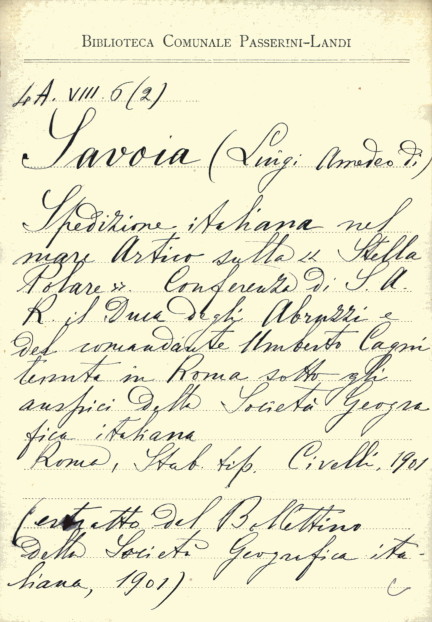 BIBLIOTECA COMUNALE PASSERINI-LANDI
4A. VIII. 6 (2)
Savoia (Luigi Amedeo di)
Spedizione italiana nel
mare Artico sulla « Stella
Polare ». Conferenza di S. A.
R. il Duca degli Abruzzi e
del comandante Umberto Cagni
tenuta in Roma sotto gli
auspici della Società Geogra
fica italiana
Roma, Stab. tip. Civelli, 1901
(estratto dal Bollettino
della Società Geografica ita-
liana, 1901)